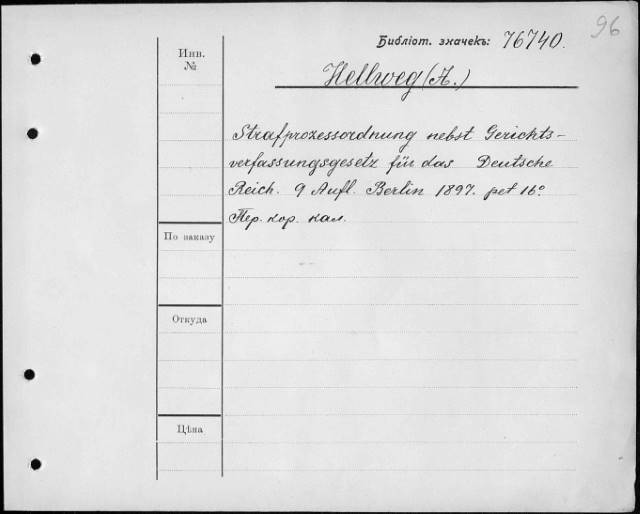 96
Библіот. значекъ: 76740.
Инв.
№
Hellweg (A.)
Strafprozessordnung nebst Gerichts-
verfassungsgesetz für das Deutsche
Reich. 9 Aufl. Berlin 1897. pet 16°
Пер. кор. кал.
По заказу
Откуда
Цѣна